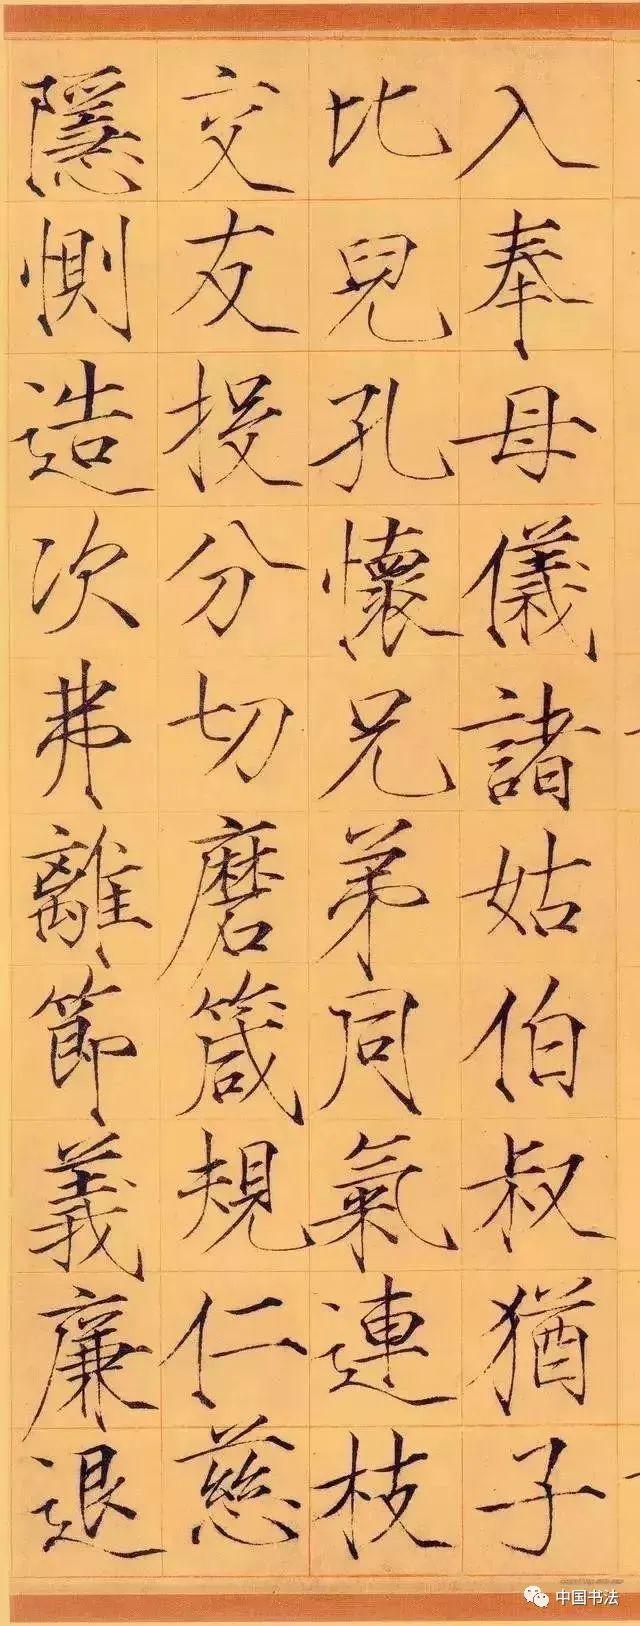 入奉母儀諸姑伯叔猶子
比兒孔懷兄弟同氣連枝
交友投分切磨箴規仁慈
隱惻造次弗離節義廉退
中国书法